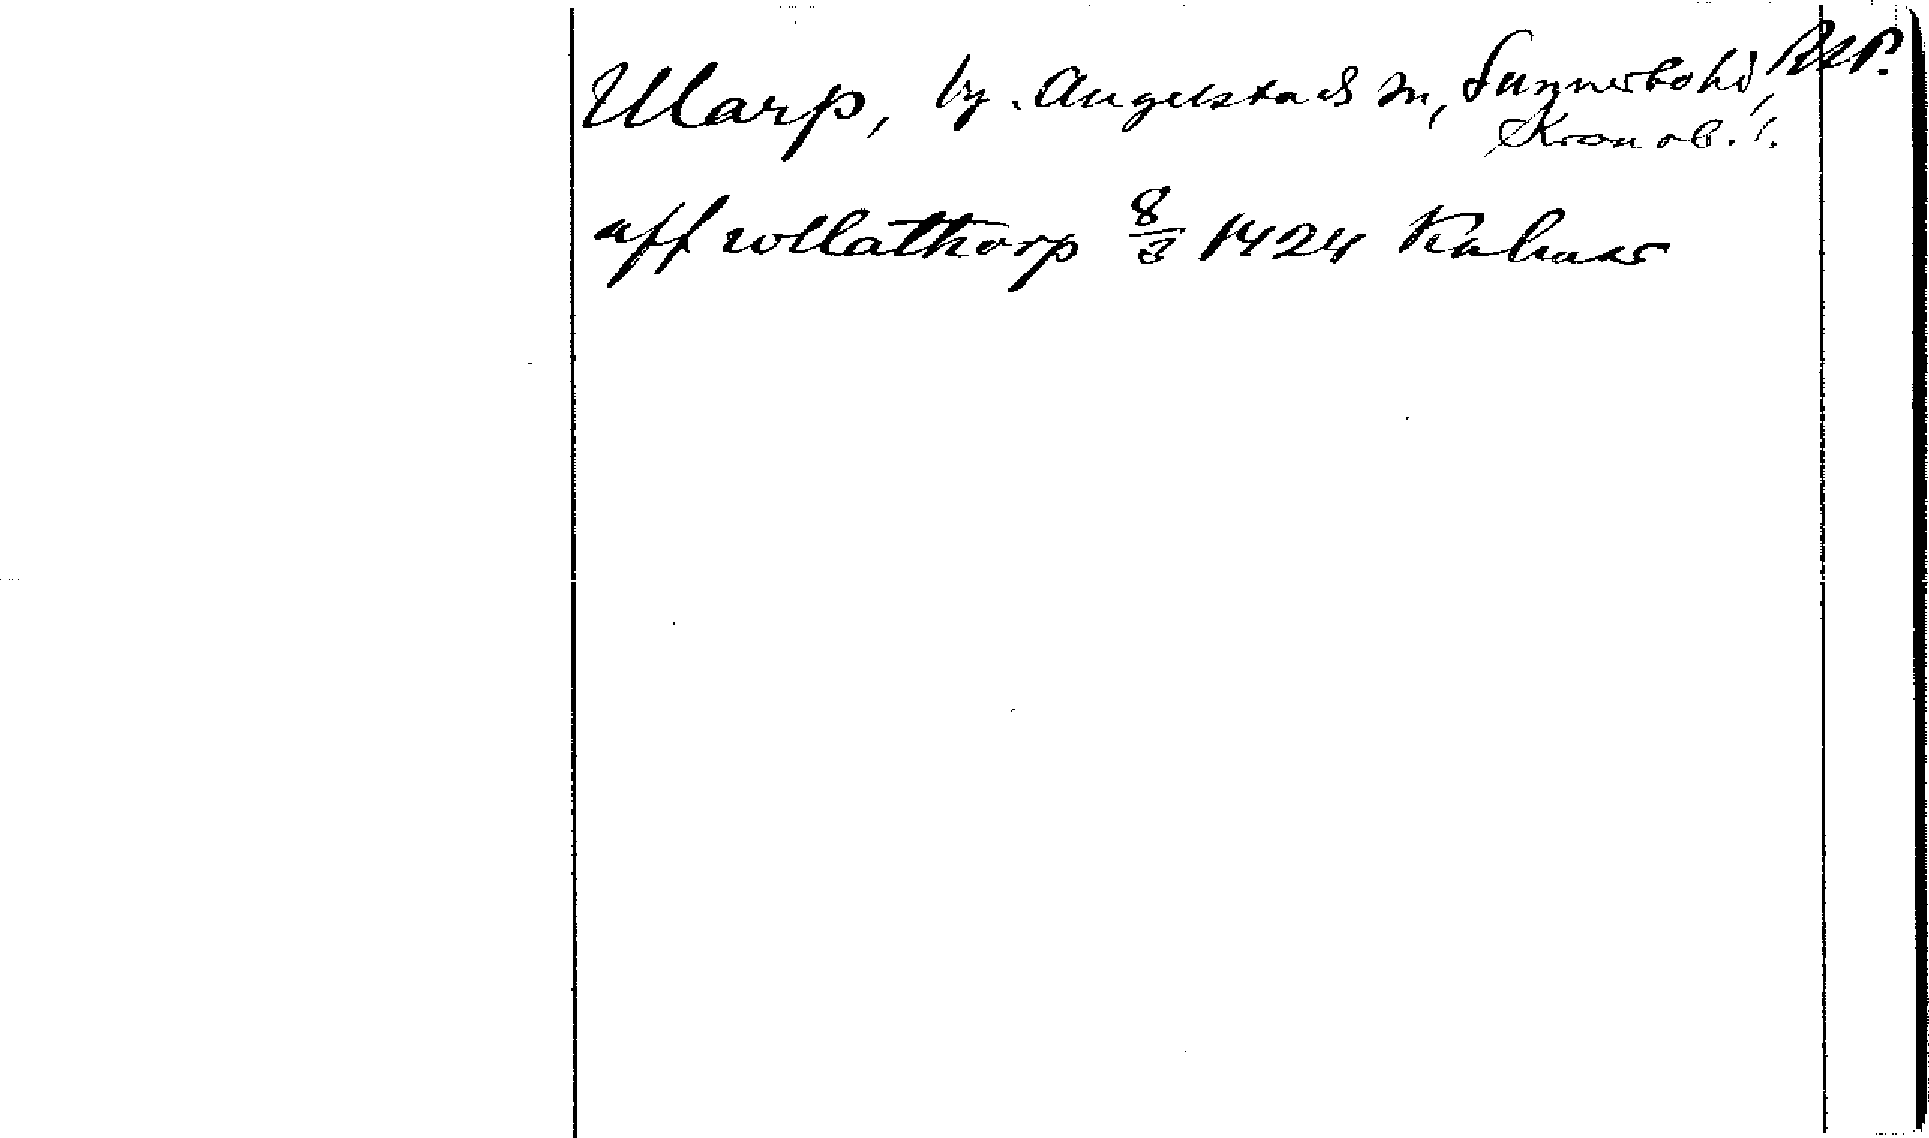 Ularp, by. Angelstads sn, Sunnerbo hd, RAP.
Kronob. l.
aff wllathorp 8/3 1424 Kalmar